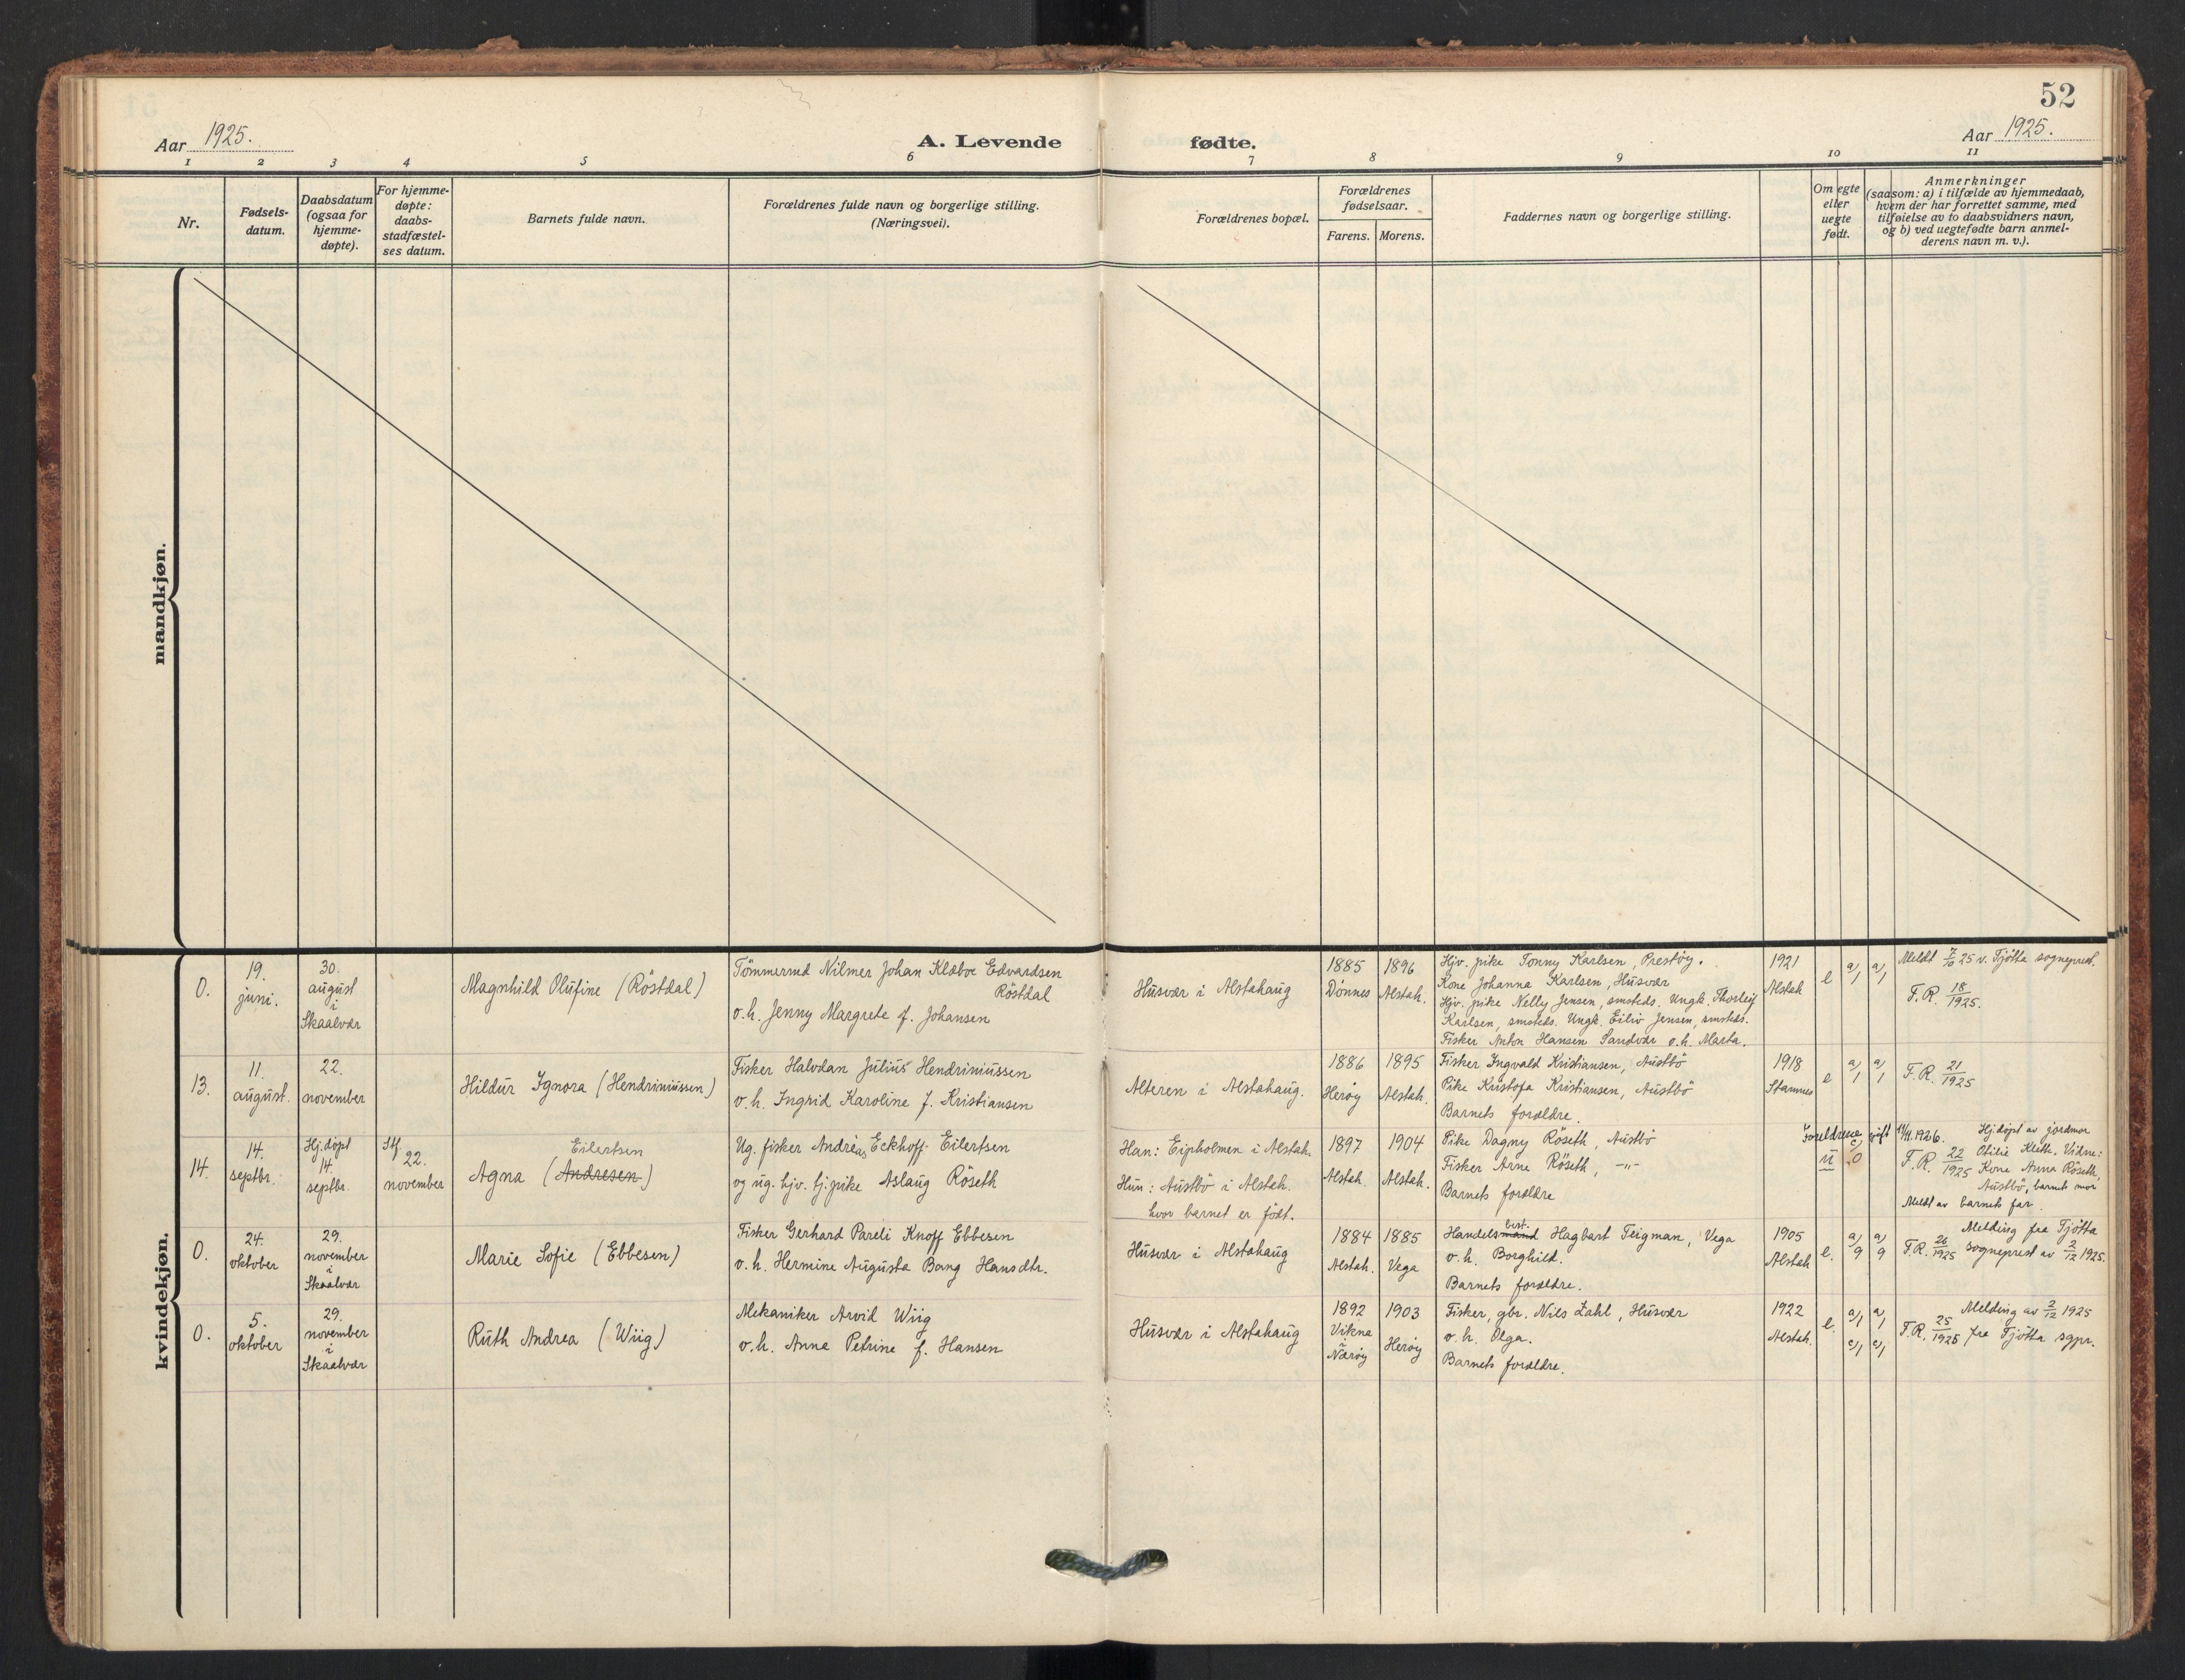 52
Aar 1925.
A. Levende fødte.
Aar 1925.
1 2 3 4 5 6 7 8 9 10 11
Nr.
Fødsels-
datum.
Daabsdatum
(ogsaa for
hjemme-
døpte).
For hjemme-
døpte:
daabs-
stadfæstel-
ses datum.
Barnets fulde navn.
Forældrenes fulde navn og borgerlige stilling.
(Næringsvei).
Forældrenes bopæl.
Forældrenes
fødselsaar.
Farens. Morens.
Faddernes navn og borgerlige stilling.
Om egte
eller
uegte
født.
Anmerkninger
(saasom: a) i tilfælde av hjemmedaab,
hvem der har forrettet samme, med
tilføielse av to daabsvidners navn,
og b) ved uegtefødte barn anmel-
derens navn m. v.).
mandkjøn.
kvindekjøn.
0.
19.
juni.
30.
august
i
Skaalvær
Magnhild Olufine (Röstdal)
Tömmermd Nilmer Johan Klæboe Edvardsen
Röstdal
o. h. Jenny Margrete f. Johansen
Husvær i Alstahaug
1885
Dønnes
1896
Alstah.
Hjv. pike Tonny Karlsen, Prestöy.
Kone Johanna Karlsen, Husvær
Hjv. pike Nelly Jensen, smsteds. Ungk. Thorleif
Karlsen, smsteds. Ungk. Eiliv Jensen, smsteds.
Fisker Anton Hansen Sandvær o. h. Marta.
1921
Alstah
e a/1 a/1
Meldt 7/10 25 v. Tjötta sogneprest.
F. R. 18/1925.
13.
11.
august.
22.
november
Hildur Ignora (Hendriniussen)
Fisker Halvdan Julius Hendriniussen
o. h. Ingrid Karoline f. Kristiansen
Alteren i Alstahaug.
1886
Herøy
1895
Alstah.
Fisker Ingvald Kristiansen, Austbö
Pike Kristofa Kristiansen, Austbö
Barnets forældre.
1918
Stamnes
e a/1 a/1
F. R. 21/1925
14.
14.
septbr.
Hj.döpt
14.
septbr.
Stf.
22.
november
Eilertsen
Agna (Andresen)
Ug. fisker Andreas Eckhoff Eilertsen
og ug. hjv. tj.pike Aslaug Röseth
Han: Eipholmen i Alstah.
Hun: Austbö i Alstah.
hvor barnet er født.
1897
Alstah.
1904
Alstah.
Pike Dagny Röseth, Austbö
Fisker Arne Röseth, -"-
Barnets forældre
Foreldrene gift 14/11.1926.
u c/0
F. R. 22/1925
Hj.döpt av jordmor
Otilie Kleth. Vidne:
Kone Anna Röseth,
Austbö, barnets mor
Meldt av barnets far.
0.
24.
oktober
29.
november
i
Skaalvær
Marie Sofie (Ebbesen)
Fisker Gerhard Pareli Knoff Ebbesen
o. h. Hermine Augusta Bang Hansdtr.
Husvær i Alstahaug
1884
Alstah.
1885
Vega
best.
Handelsmand Hagbart Teigman, Vega
o. h. Borghild.
Barnets forældre.
1905
Alstah
e. a/9 a/9
F.R. 26/1925
Melding fra Tjötta
sogneprest av 2/12 1925.
0.
5.
oktober
29.
november
i
Skaalvær
Ruth Andrea (Wiig)
Mekaniker Arvid Wiig
o. h. Anna Petrine f. Hansen
Husvær i Alstahaug
1892
Vikna
Nærøy
1903
Herøy
Fisker, gbr. Nils Zahl, Husvær
o. h. Olga.
Barnets forældre.
1922
Alstah.
e. a/1 a/1
c/1 c/1
F.R. 25/1925
Melding av 2/12 1925
fra Tjötta sgpr.